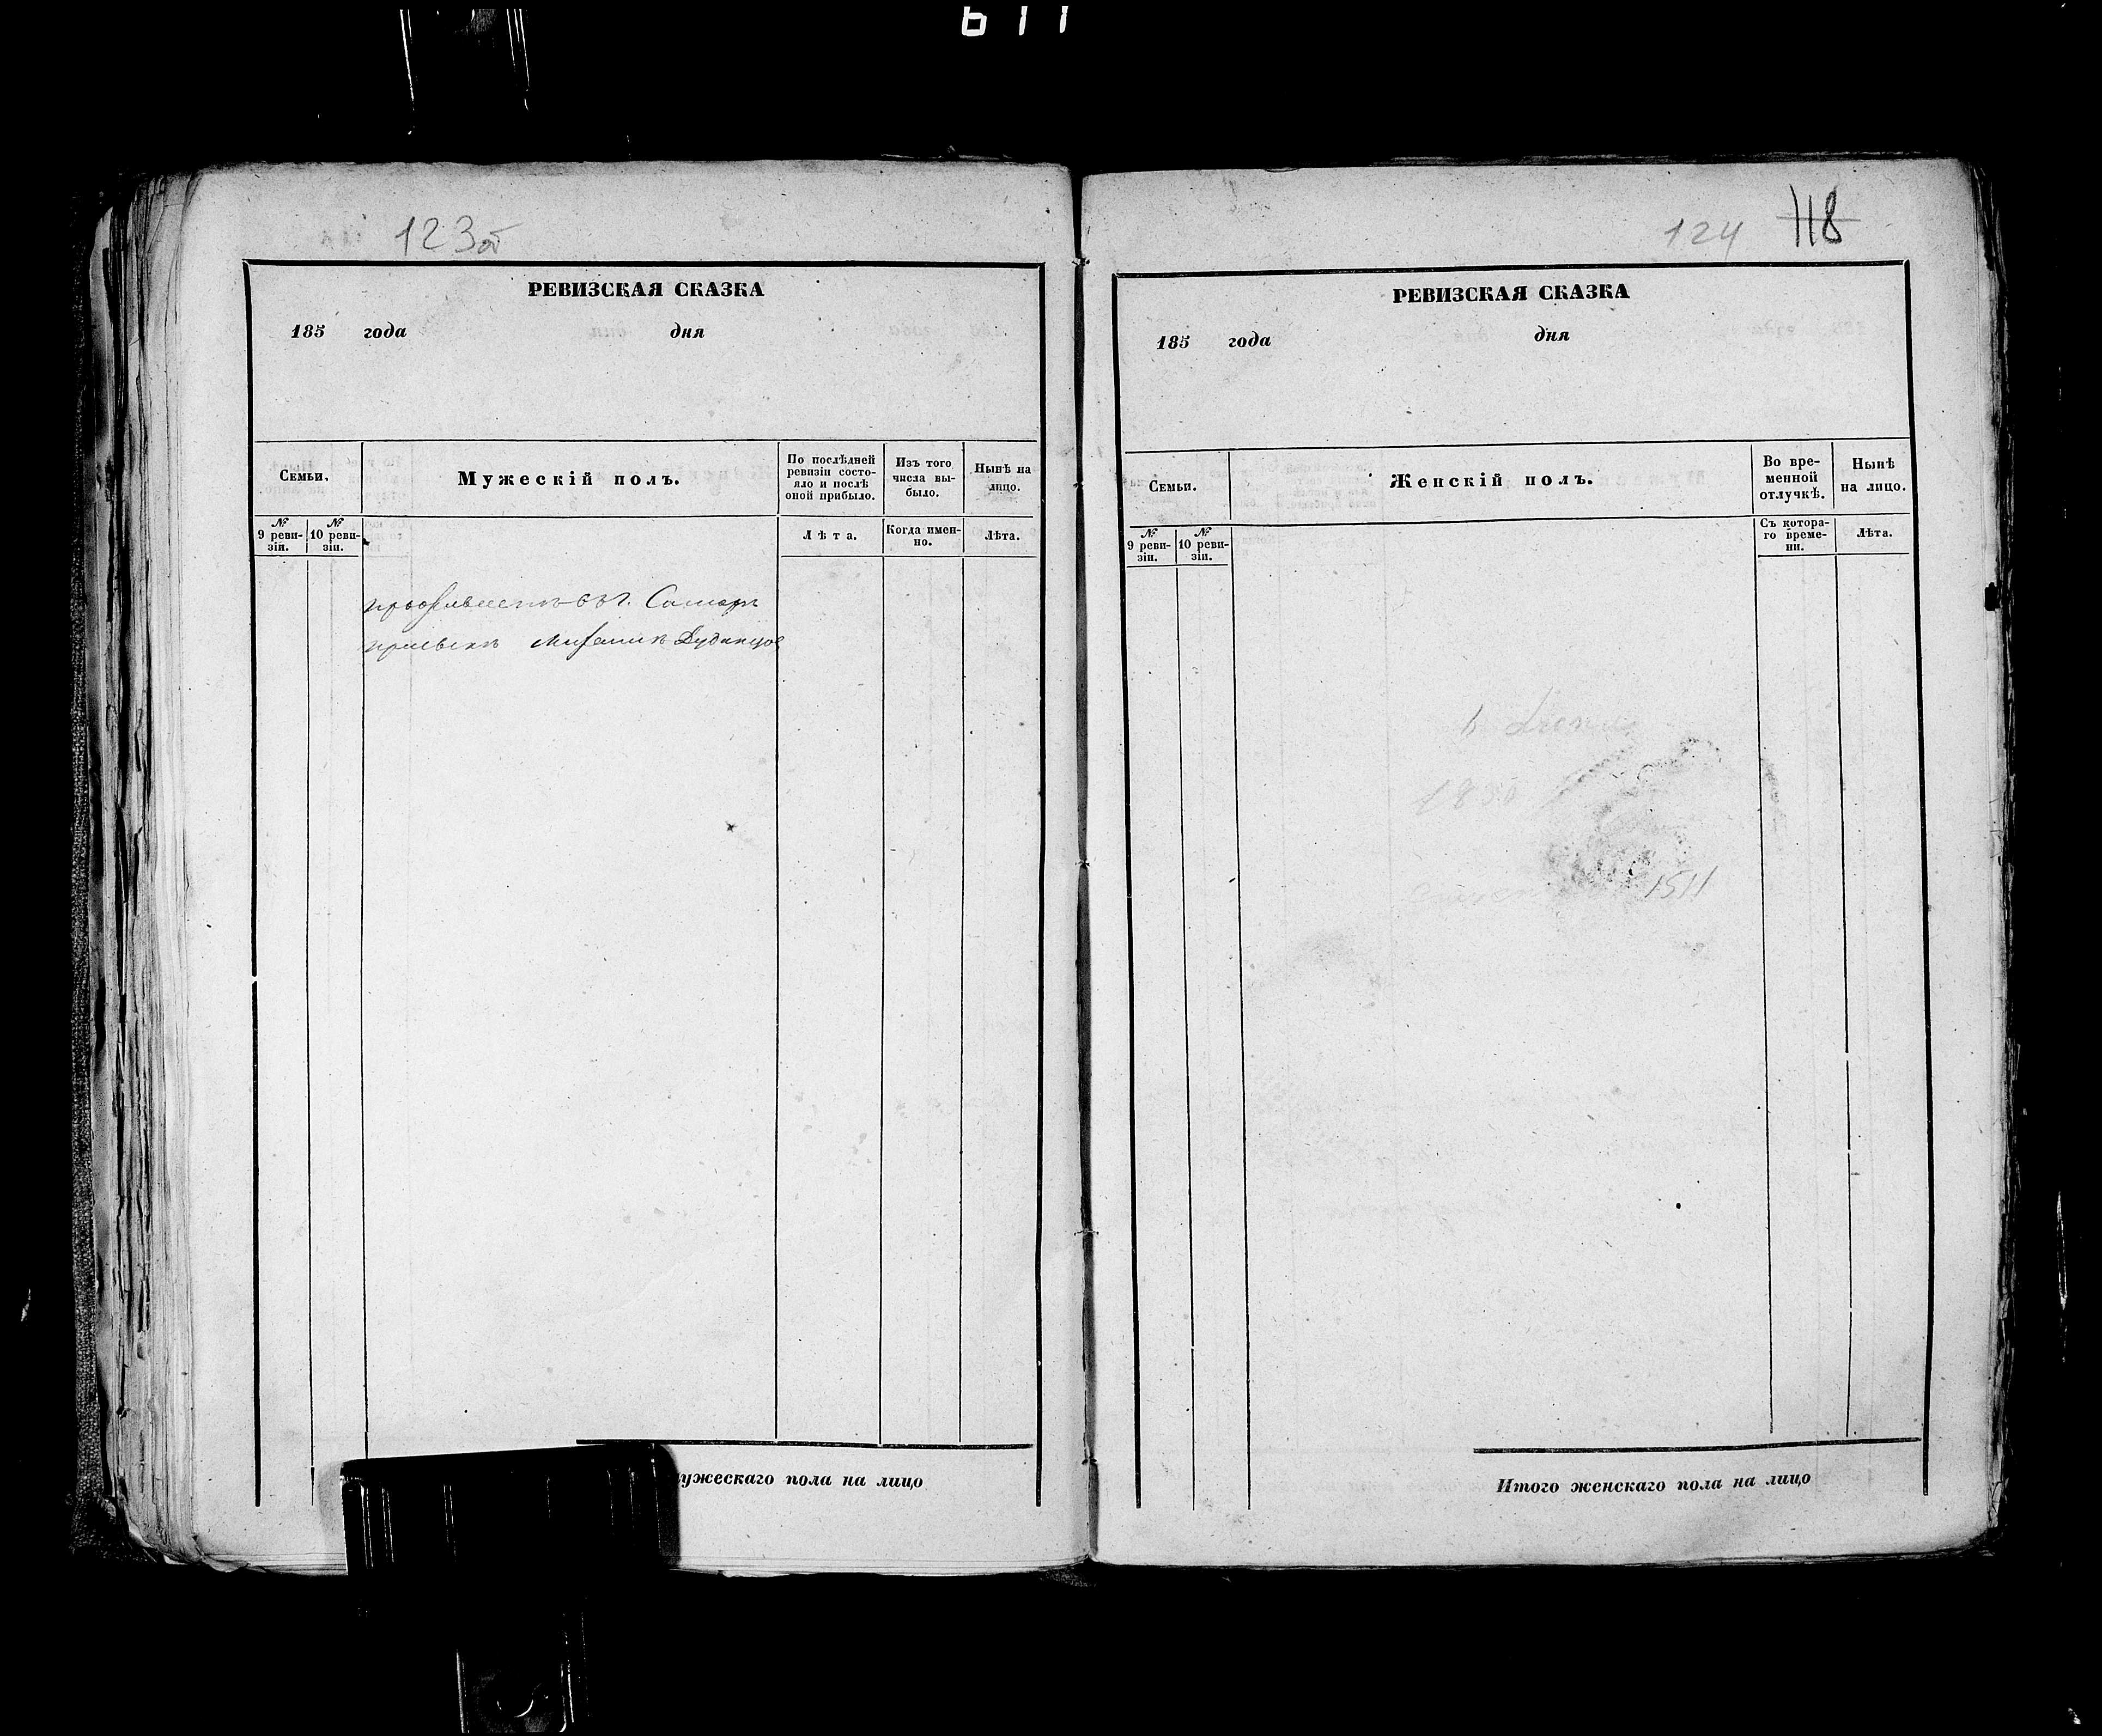 611
123об
РЕВИЗСКАЯ СКАЗКА
185 года дня
Семьи.
Мужескій полъ.
По послѣдней
ревизіи состо-
яло и послѣ
оной прибыло.
Изъ того
числа вы-
было.
Нынѣ на
лицо.
№
9 реви-
зіи.
№
10 реви-
зіи.
Лѣта.
Когда имен-
но.
Лѣта.
г. Самары
ужескаго пола на лицо
124 118
РЕВИЗСКАЯ СКАЗКА
185 года дня
Семьи.
Женскій полъ.
Во вре-
менной
отлучкѣ.
Нынѣ
на лицо.
№
9 реви-
зіи.
№
10 реви-
зіи.
Съ котора-
го време-
ни.
Лѣта.
Итого женскаго пола на лицо